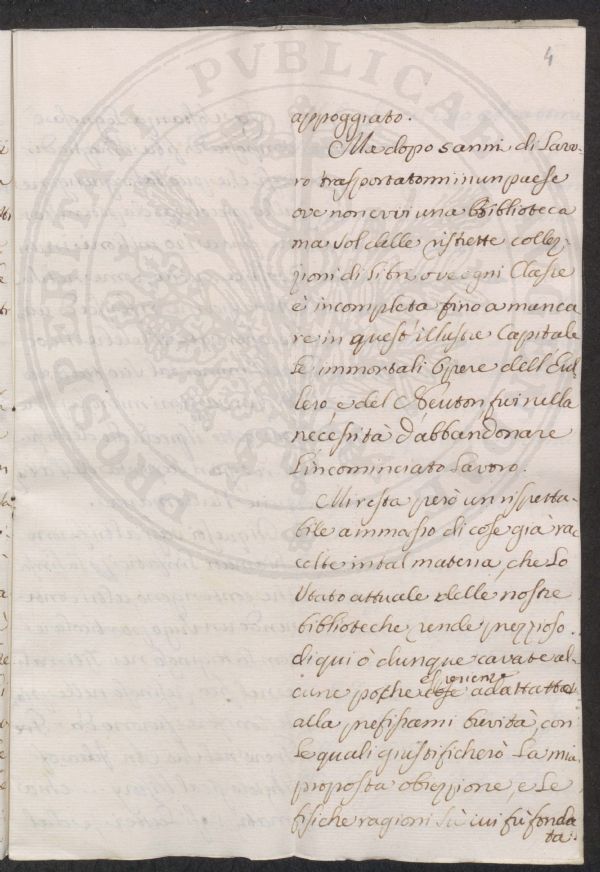 4
appoggiato.
Ma dopo 5 anni di Lavo-
ro trasportatomi in un paese
ove non evvi una Biblioteca
ma sol delle ristrette collez-
zioni di Libri ove ogni Classe
è incompleta fino a manca
re in quest'illustre Capitale
Le immortali Opere dell'Eul
lero, e del Neuton fui nella
necessità d'abbandonare
L'incominciato Lavoro.
Mi resta però un rispetta
bile ammasso di cose già rac
colte in tal materia, che Lo
Stato attuale delle nostre
biblioteche rende prezzioso.
di qui ò dunque cavate al
cune poche esperienze adattate
alla prefissami brevità, con
Le quali giustificherò La mia
proposta obiezzione, e Le
fisiche ragioni sù cui fù fonda
ta.
PROSPERITATI PVBLICAE